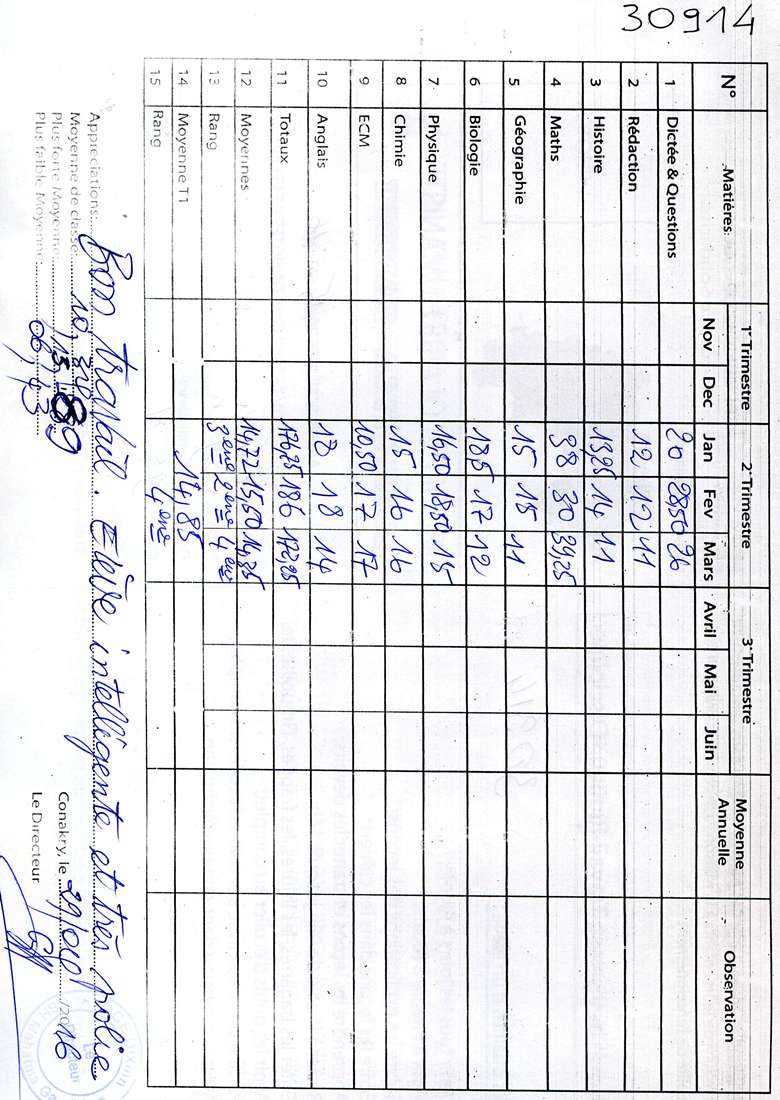 30914
N° Matières 1° Trimestre 2° Trimestre 3° Trimestre Moyenne Annuelle Observation
Nov Dec Jan Fev Mars Avril Mai Juin
1 Dictée & Questions 20 28,50 26
2 Rédaction 12 12 11
3 Histoire 13,25 14 11
4 Maths 38 30 39,25
5 Géographie 15 15 11
6 Biologie 13,5 17 12
7 Physique 16,50 18,50 15
8 Chimie 15 16 16
9 ECM 10,50 17 17
10 Anglais 18 18 14
11 Totaux 176,25 186 172,25
12 Moyennes 14,72 15,50 14,35
13 Rang 3ème 2ème 4ème
14 Moyenne T1 14,85
15 Rang 4ème
Appreciations: Bon travail. Elève intelligente et très polie
Moyenne de classe: 10,
Plus forte Moyenne: 15,89
Plus faible Moyenne: 06,43
Conakry, le 29/04/2016
Le Directeur